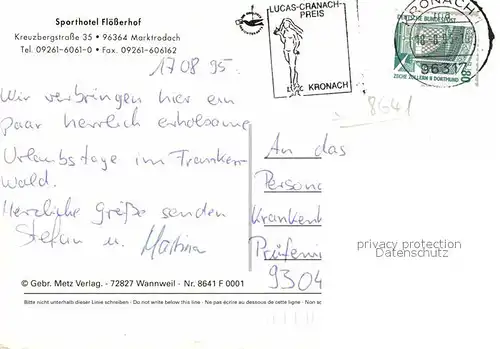 Sporthotel Flößerhof
Kreuzbergstraße 35 • 96364 Marktrodach
Tel. 09261-6061-0 • Fax. 09261-606162
LUCAS-CRANACH-
PREIS
KRONACH
KRONACH
DEUTSCHE BUNDESPOST
96317
80
ZECHE ZOLLERN II DORTMUND
8641
17 08 95.
Wir verbringen hier ein
paar herrlich erholsame
Urlaubstage im Franken-
wald.
Herzliche Grüße senden
Stefan u. Martina
An das
Persona
Krankenh
Prüfenin
9304
privacy protection
Datenschutz
© Gebr. Metz Verlag. - 72827 Wannweil - Nr. 8641 F 0001
Bitte nicht unterhalb dieser Linie schreiben - Do not write below this line - Ne pas écrire au dessous de cette ligne - Non sc